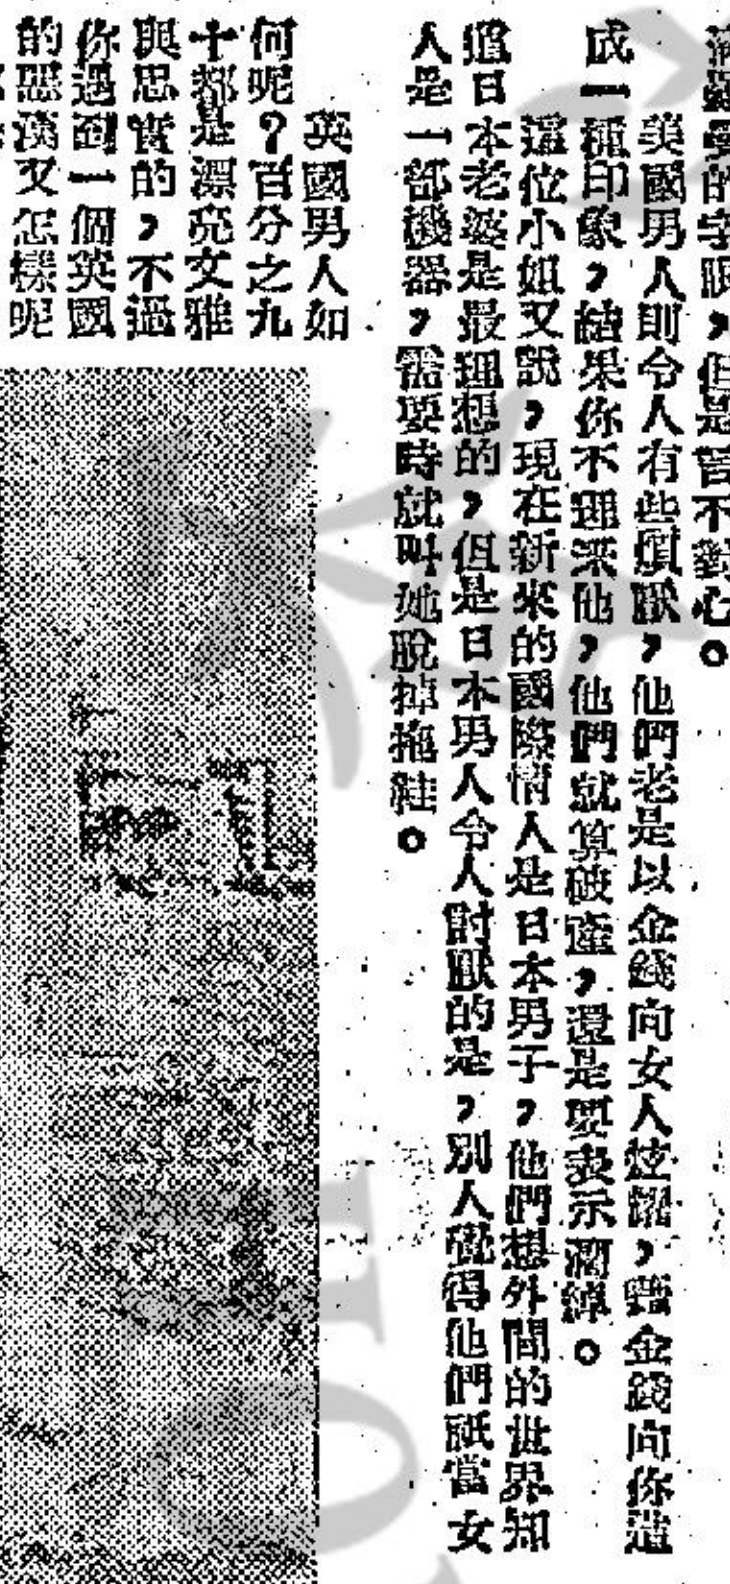 的字眼，但是言不對心。
美國男人則令人有些煩厭，他們老是以金錢向女人炫耀，藉金錢向你造
成一種印象，結果你不理采他，他們就算破產，還是要表示濶綽。
這位小姐又說，現在新來的國際情人是日本男子，他們想外間的世界知
道日本老婆是最理想的，但是日本男人令人討厭的是，別人覺得他們祇當女
人是一部機器，需要時就叫她脫掉拖鞋。
英國男人如
何呢？百分之九
十都是漂亮文雅
與忠實的，不過
你遇到一個英國
的惡漢又怎樣呢